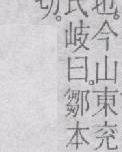 地。今山東兖
氏岐曰。鄒本
切。